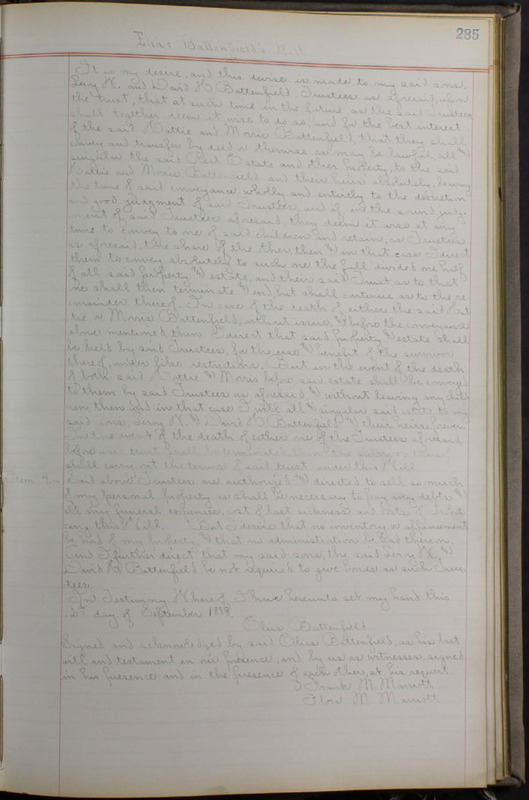 285
Elias Battenfield's Will
It is my desire, and this devise is made to my said sons,
Levy K. and David O Battenfield, Trustees as aforesaid, upon
the trust, that at such time in the future, as the said Trustees
shall together deem it wise to do so, and for the best interest
of the said Hattie and Morris Battenfield, that they shall
convey and transfer by deed or otherwise as may be lawful, all &
singular the said Real Estate and other property, to the said
Hattie and Morris Battenfield and their heirs absolutely, leaving
the time of said conveyance wholly and entirely to the discretion
and good judgment of said Trustees, and if in the sound judg-
ment of said Trustees aforesaid, they deem it wise at any
time to convey to one of said children and retain, as Trustees
as aforesaid, the share of the other, then & in that case I direct
them to convey absolutely to such one the full undivided one half
of all said property & estate, and their said Trust as to that
one shall then terminate & end, but shall continue as to the re-
mainder thereof. In case of the death of either the said Hat-
tie or Morris Battenfield, without issue, & before the conveyance
above mentioned, then I direct that said property & estate shall
be held by said Trustees, for the use & benefit of the survivor
thereof, under like restrictions. But in the event of the death
of both said Hattie & Morris before said estate shall be conveyed
to them by said Trustees as aforesaid & without leaving any
then and in that case I will all & singular said estate to my
said sons, Levy K. & David O Battenfield & their heirs forever.
In the event of the death of either one of the Trustees aforesaid
before said trust shall be terminated, then the
shall carry out the terms of said trust under this Will.
Item 4.- Said above Trustees are authorized & directed to sell so much
of my personal property as shall be necessary to pay my debts &
all my funeral expenses, cost of last sickness and
this Will. But I desire that no inventory or appraisement
be had of my property, & that no administration be had thereon,
and I further direct that my said sons, the said Levy K. &
David O Battenfield be not required to give bonds as such Trus-
tees.
In Testimony Whereof, I have hereunto set my hand this
27 day of September 1898.
Elias Battenfield
Signed and acknowledged by said Elias Battenfield, as his last
will and testament in our presence, and by us as witnesses signed
in his presence and in the presence of each other, at his request.
Frank M. Marriott
Flora M. Marriott